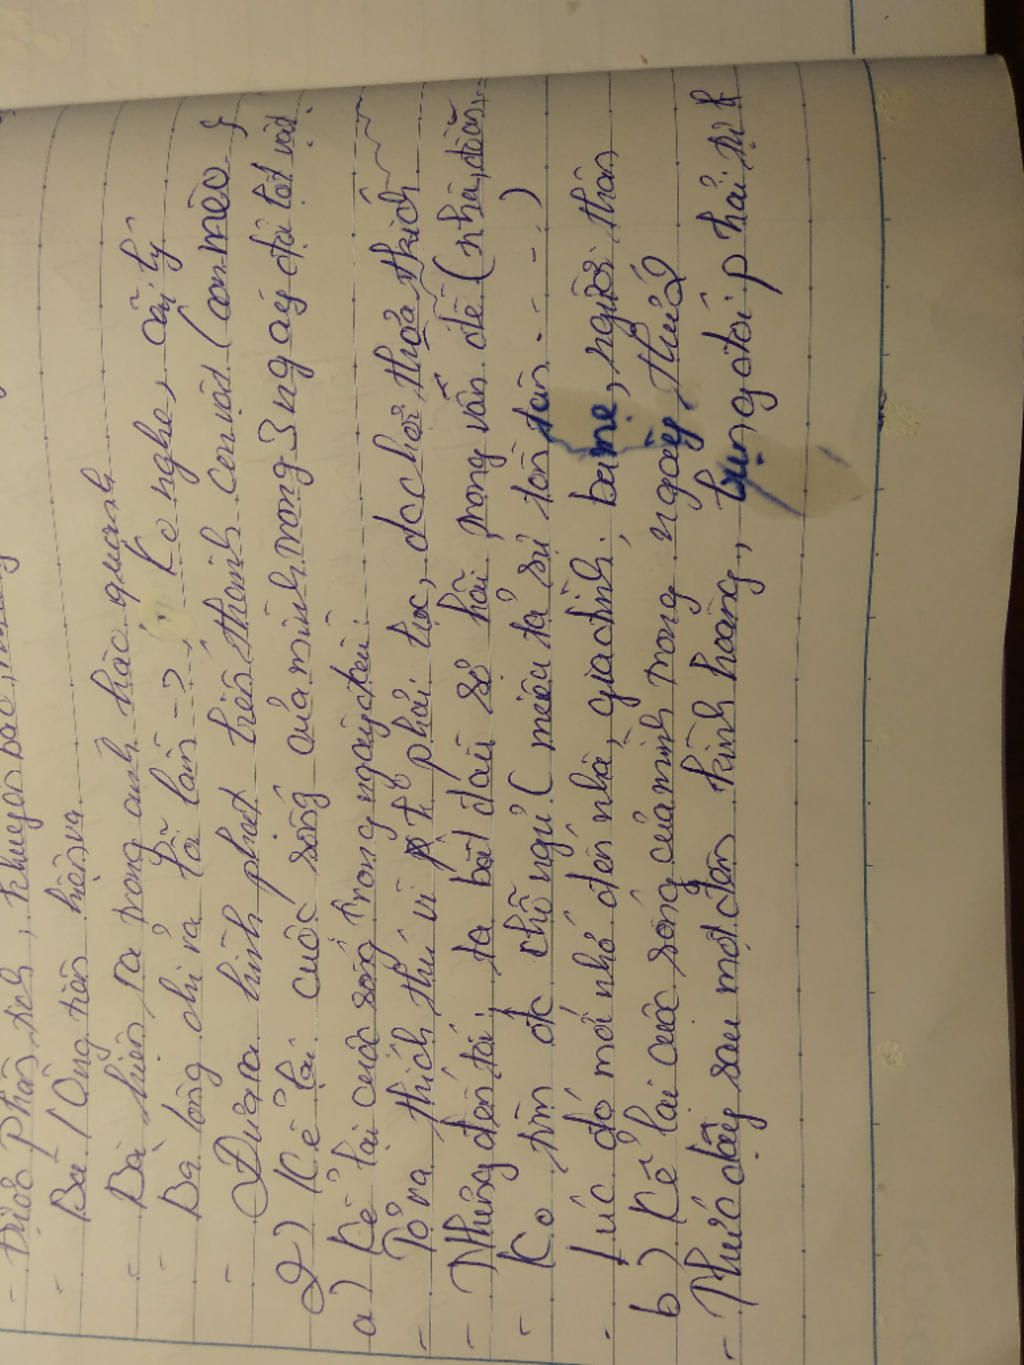 - Được phân tích, khuyên bảo,
- Bà / Ông tiên hiện ra
- Bà hiện ra trong anh hào quang
- Bà lòng chỉ ra lỗi lầm -> Ko nghe, cãi lý
- Đưa ra hình phạt biến thành con vật (con mèo
2) Kể lại cuộc sống của mình trong 3 ngày đội lốt vật.
a) Kể lại cuộc sống trong ngày đầu:
- Tỏ ra thích thú vì ko phải học, đc chơi thỏa thích
- Nhưng đến tối, ta bắt đầu sợ hãi trong vấn đề (nhà, đồ ăn,
- Ko tìm đc chỗ ngủ. (miêu tả sự tồi tàn. - - - )
- Lúc đó mới nhớ đến nhà, gia đình, ba mẹ, người thân
b) Kể lại cuộc sống của mình trong ngày thứ 2
- Thức dậy sau một đêm kinh hoàng, bụng đói phải tự k